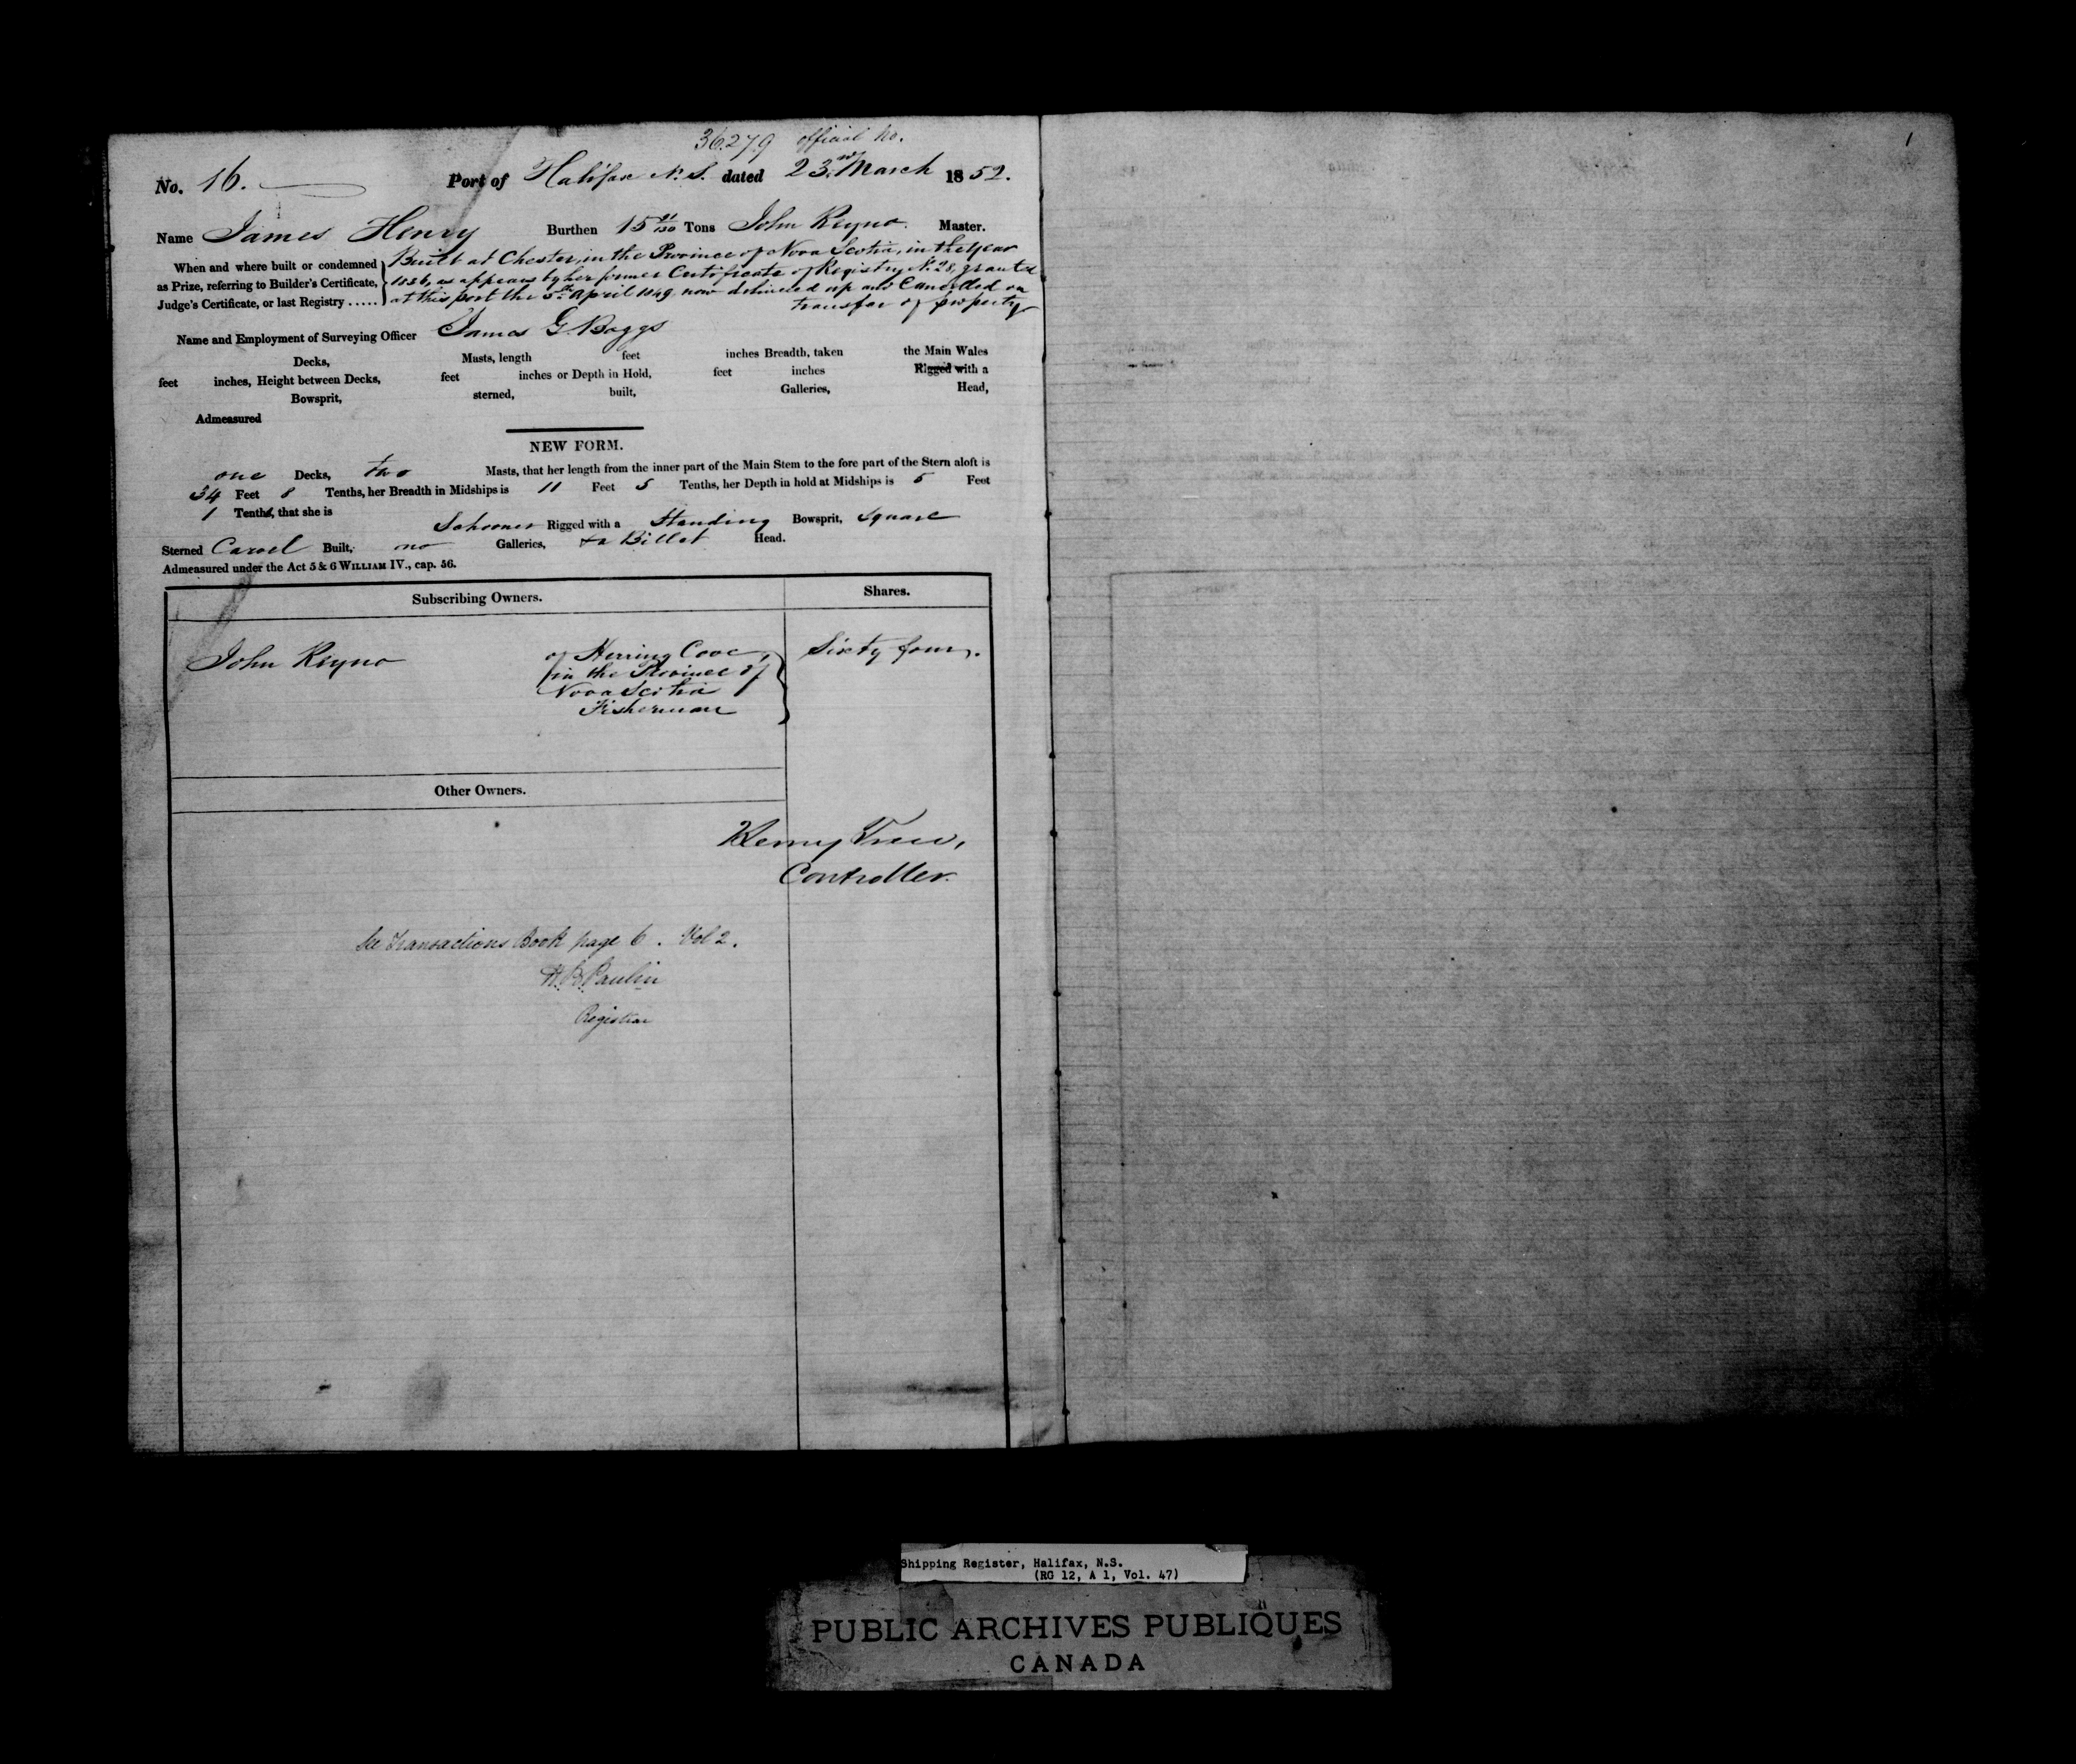 36.279 official No.
No. 16. Port of Halifax N.S. dated 23rd March 1852.
Name James Henry Burthen 15 /130 Tons John Reyno Master.
When and where built or condemned as Prize, referring to Builder's Certificate, Judge's Certificate, or last Registry .....
Built at Chester, in the Province of Nova Scotia, in the year
1836, as appears by her former Certificate of Registry No. 28, granted
at this port the April 1849 now delivered up and Cancelled on
transfer of property
Name and Employment of Surveying Officer James G. Boggs
Decks, Masts, length feet inches Breadth, taken the Main Wales
feet inches, Height between Decks, feet inches or Depth in Hold, feet inches Rigged with a
Bowsprit, sterned, built, Galleries, Head,
Admeasured
NEW FORM.
one Decks, two Masts, that her length from the inner part of the Main Stem to the fore part of the Stern aloft is
34 Feet 8 Tenths, her Breadth in Midships is 11 Feet 5 Tenths, her Depth in hold at Midships is 5 Feet
1 Tenths, that she is Schooner Rigged with a Standing Bowsprit, Square
Sterned Carvel Built, no Galleries, & a Billet Head.
Admeasured under the Act 5 & 6 WILLIAM IV., cap. 56.
Subscribing Owners. Shares.
John Reyno of Herring Cove, Sixty four.
in the Province of
Nova Scotia
Fisherman
Other Owners.
Henry Trew,
Controller.
See Transactions Book page 6. Vol 2.
H. B. Paulin
Registrar
1
Shipping Register, Halifax, N.S.
(RG 12, A 1, Vol. 47)
PUBLIC ARCHIVES PUBLIQUES
CANADA